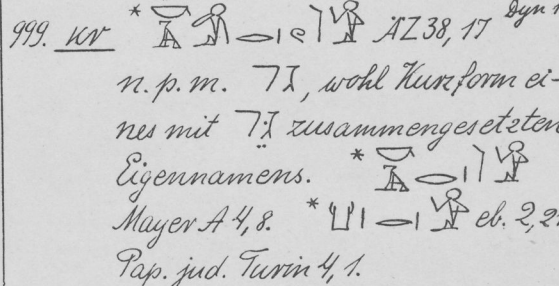 999. kr * * ÄZ 38, 17 Dyn
n. p. m. גר, wohl Kurzform ei-
nes mit גֵּר zusammengesetzten
Eigennamens. *
Mayer A 4, 8. * eb. 2, 2
Pap. jud. Turin 4, 1.